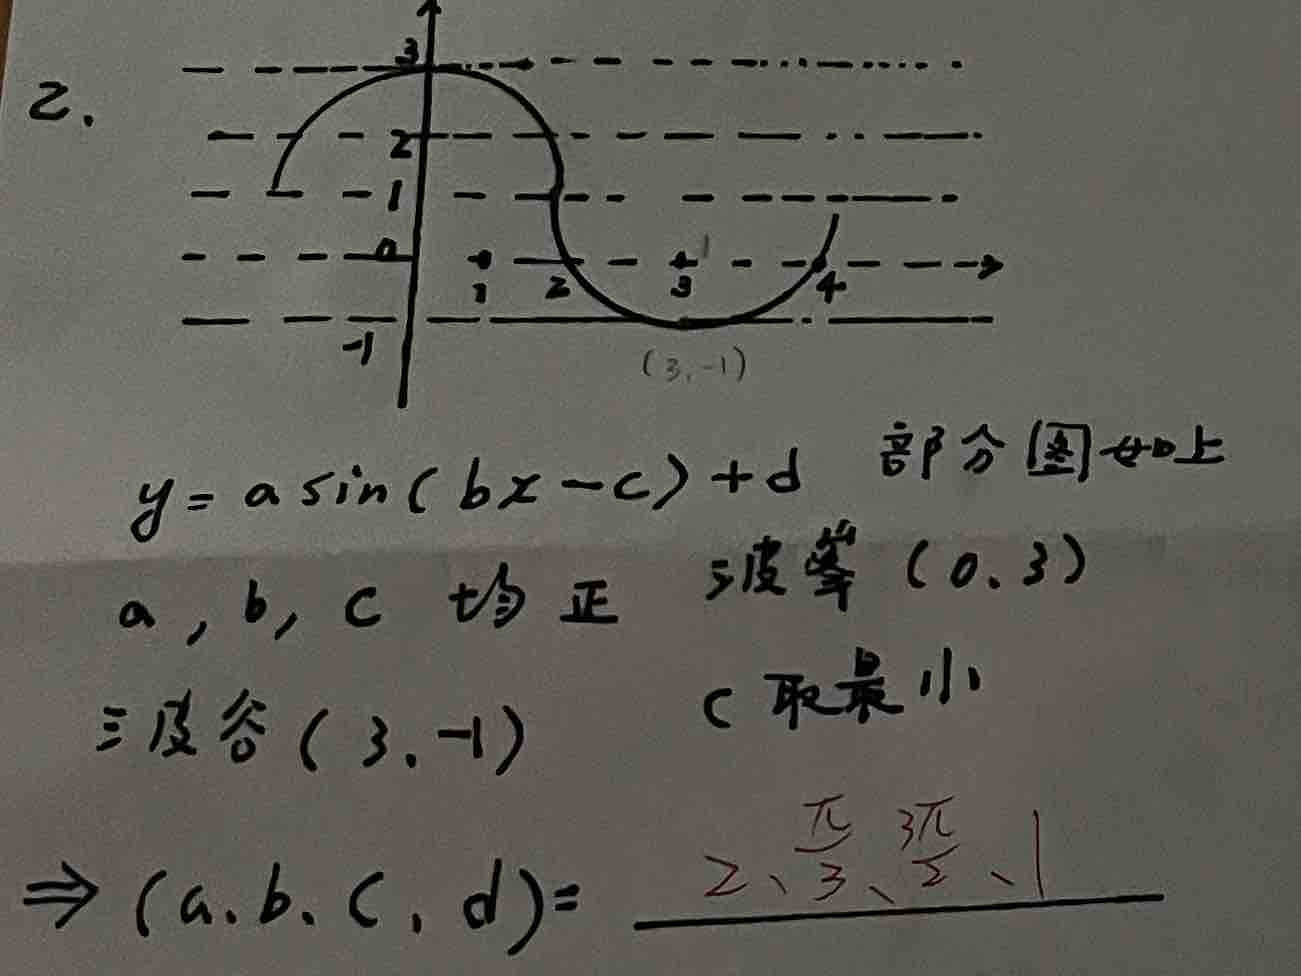 2.
3
2
1
0
1
2
3
4
-1
(3,-1)
y = a sin(bx-c)+d 部分图如上
a, b, c 均正 波峰(0.3)
波谷(3.-1) c取最小
⇒ (a.b.c,d)= 2、π/3、3π/2、1